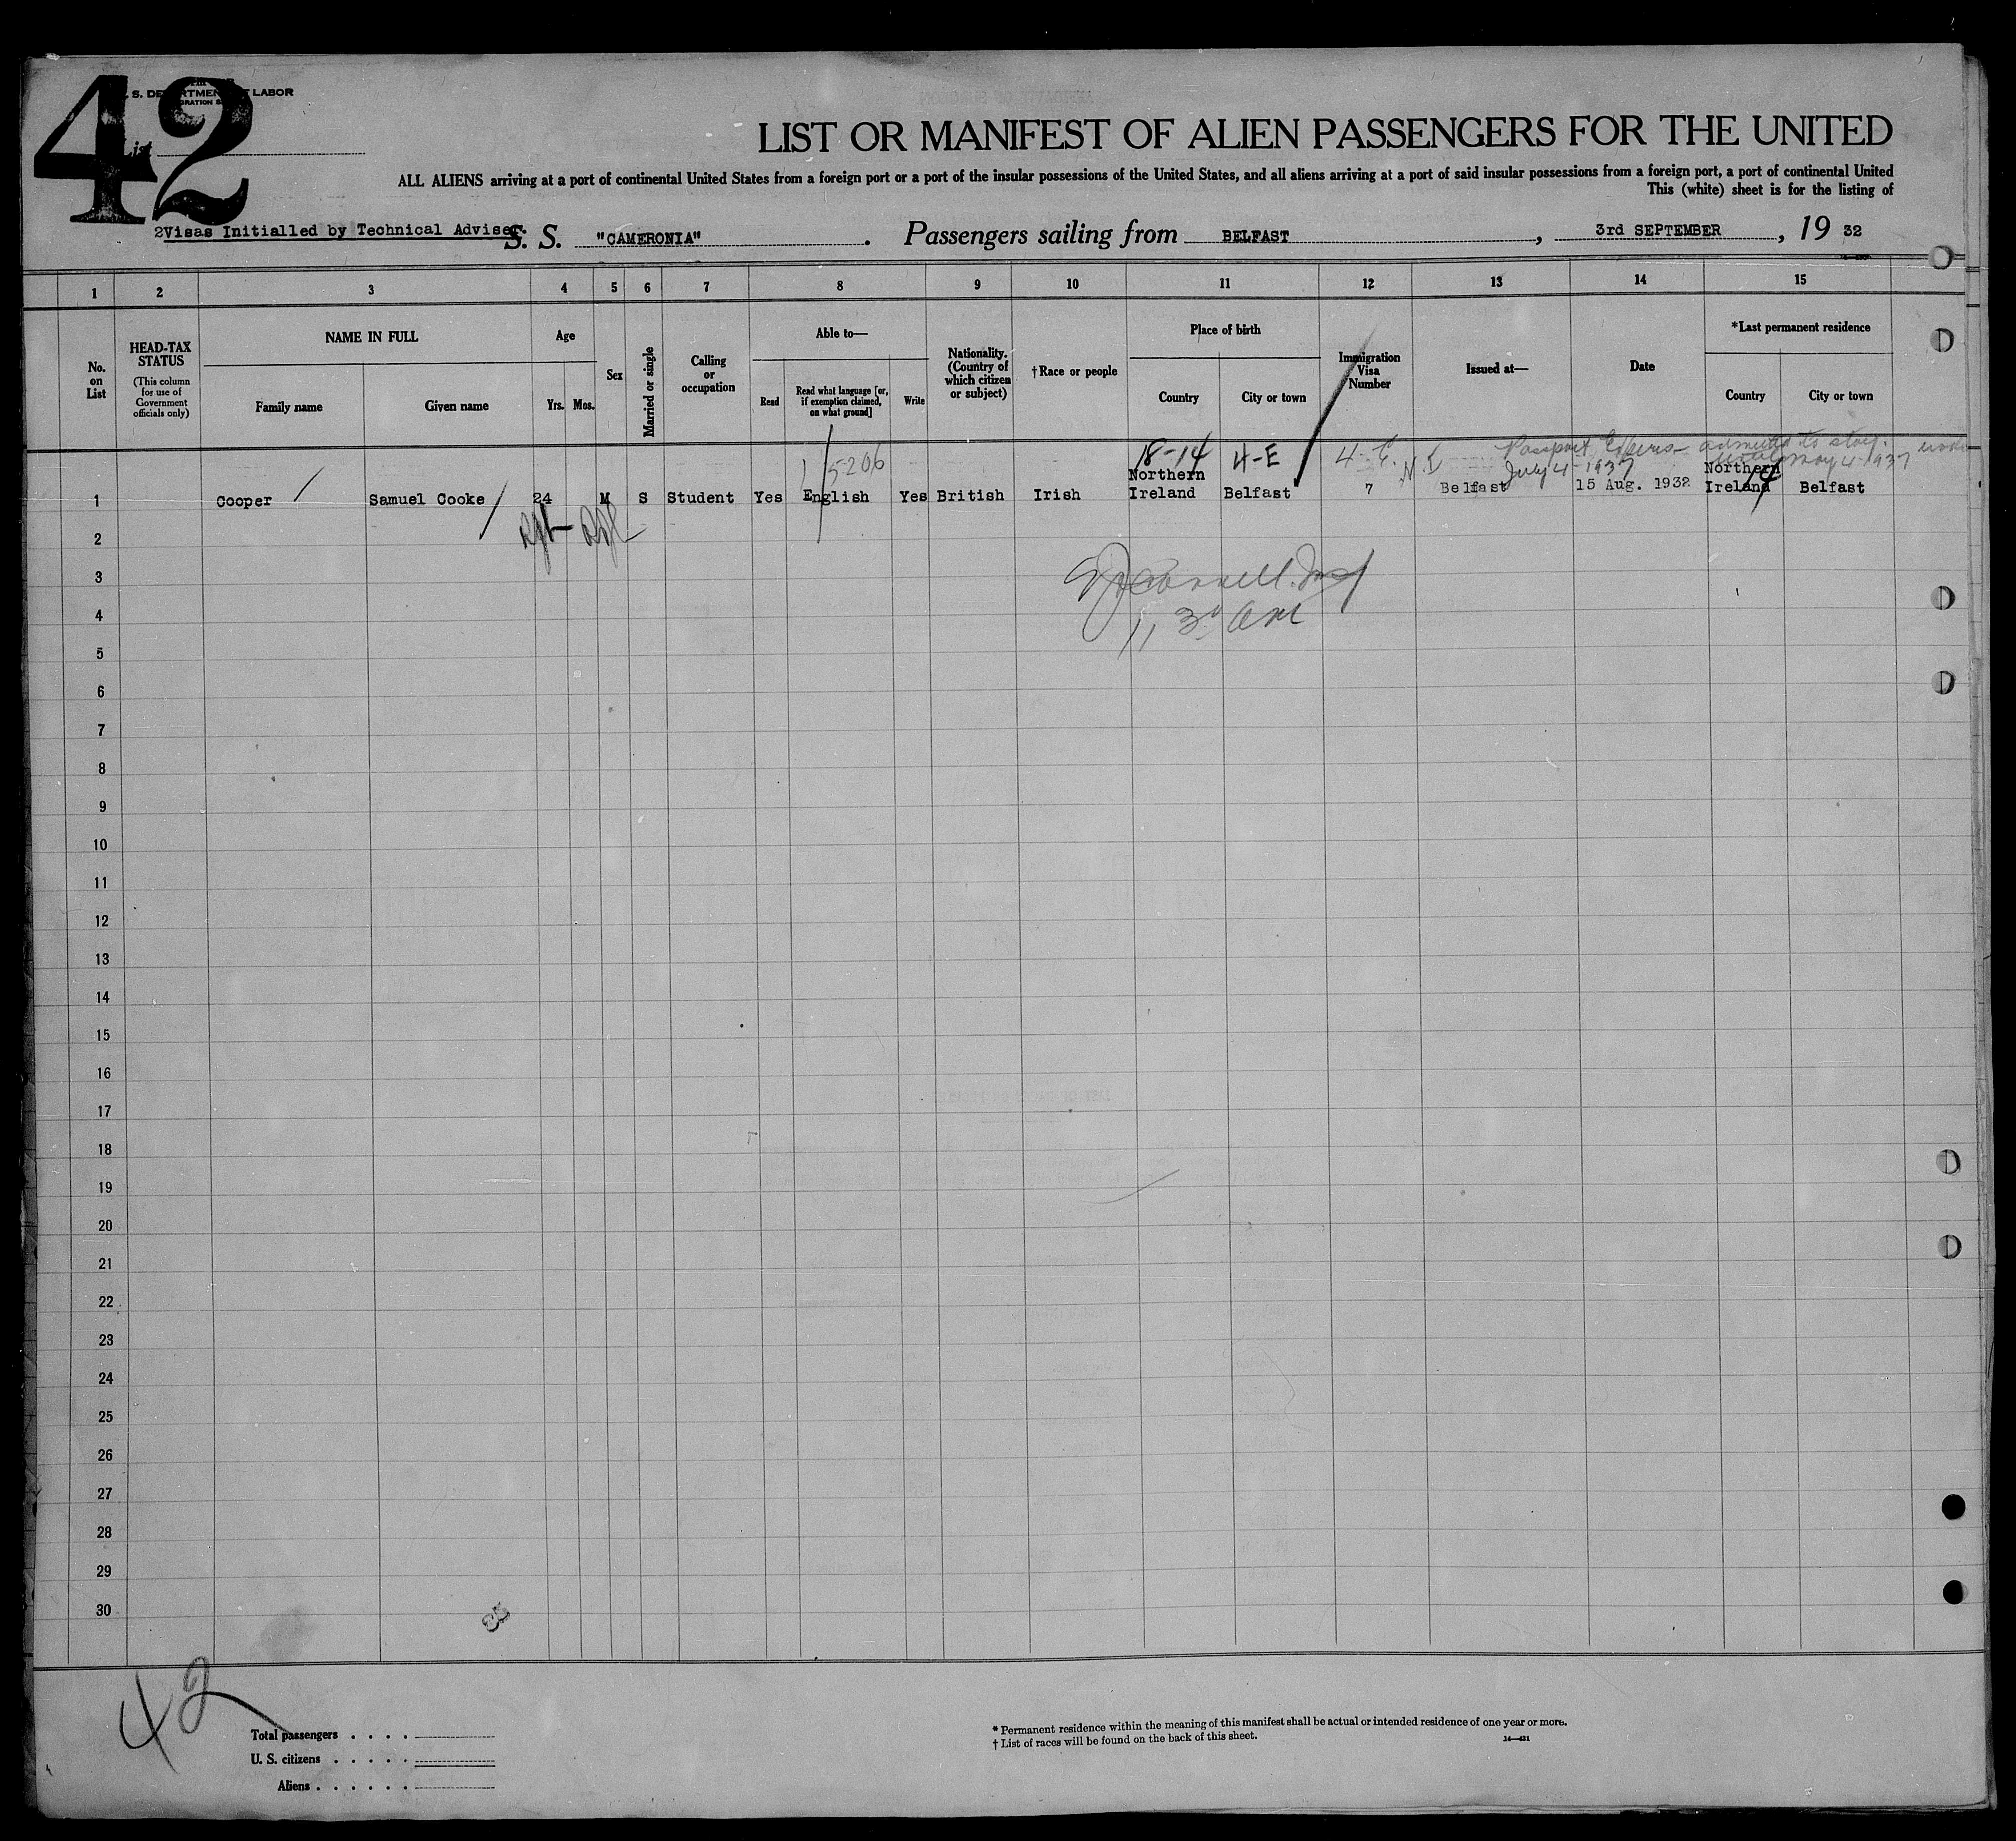 42
S. DEPARTMENT LABOR
List
LIST OR MANIFEST OF ALIEN PASSENGERS FOR THE UNITED
ALL ALIENS arriving at a port of continental United States from a foreign port or a port of the insular possessions of the United States, and all aliens arriving at a port of said insular possessions from a foreign port, a port of continental United
This (white) sheet is for the listing of
2Visas Initialled by Technical Adviser.
S. S. "CAMERONIA". Passengers sailing from BELFAST, 3rd SEPTEMBER, 19 32
1 2 3 4 5 6 7 8 9 10 11 12 13 14 15
No. on List
HEAD-TAX STATUS
(This column for use of Government officials only)
NAME IN FULL
Family name Given name
Age
Yrs. Mos.
Sex
Married or single
Calling or occupation
Able to—
Read
Read what language [or, if exemption claimed, on what ground]
Write
Nationality. (Country of which citizen or subject)
†Race or people
Place of birth
Country City or town
Immigration Visa Number
Issued at—
Date
*Last permanent residence
Country City or town
5206 18-14 4-E 4-
Passport Expires- admitted to stay
July 4-1937 until May 4-1937
1 Cooper Samuel Cooke 24 M S Student Yes English Yes British Irish Northern Ireland Belfast 7 Belfast 15 Aug. 1932 Northern Ireland Belfast
14
2
3
4
5
6
7
8
9
10
11
12
13
14
15
16
17
18
19
20
21
22
23
24
25
26
27
28
29
30
42
Total passengers . . . .
U. S. citizens . . . . .
Aliens . . . . . .
* Permanent residence within the meaning of this manifest shall be actual or intended residence of one year or more.
† List of races will be found on the back of this sheet.